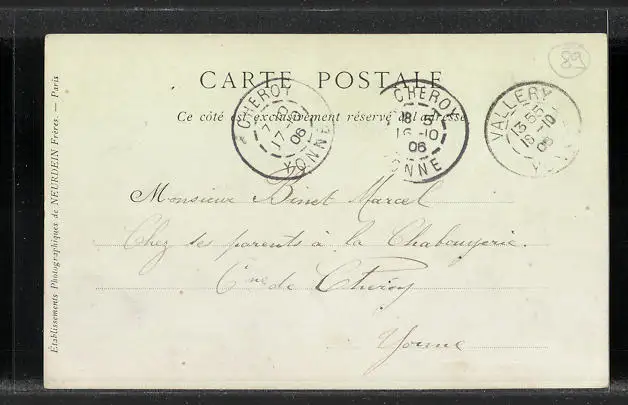 CARTE POSTALE
Ce côté est exclusivement réservé à l'adresse
CHEROY
17-10
06
YONNE
CHEROY
18 5
16-10
06
YONNE
VALLERY
13 55
16-10
06
Monsieur Binet Marcel
Chez ses parents à la Chabouyerie.
Cne de Chéroy
Yonne
Établissements Photographiques de NEURDEIN Frères. — Paris